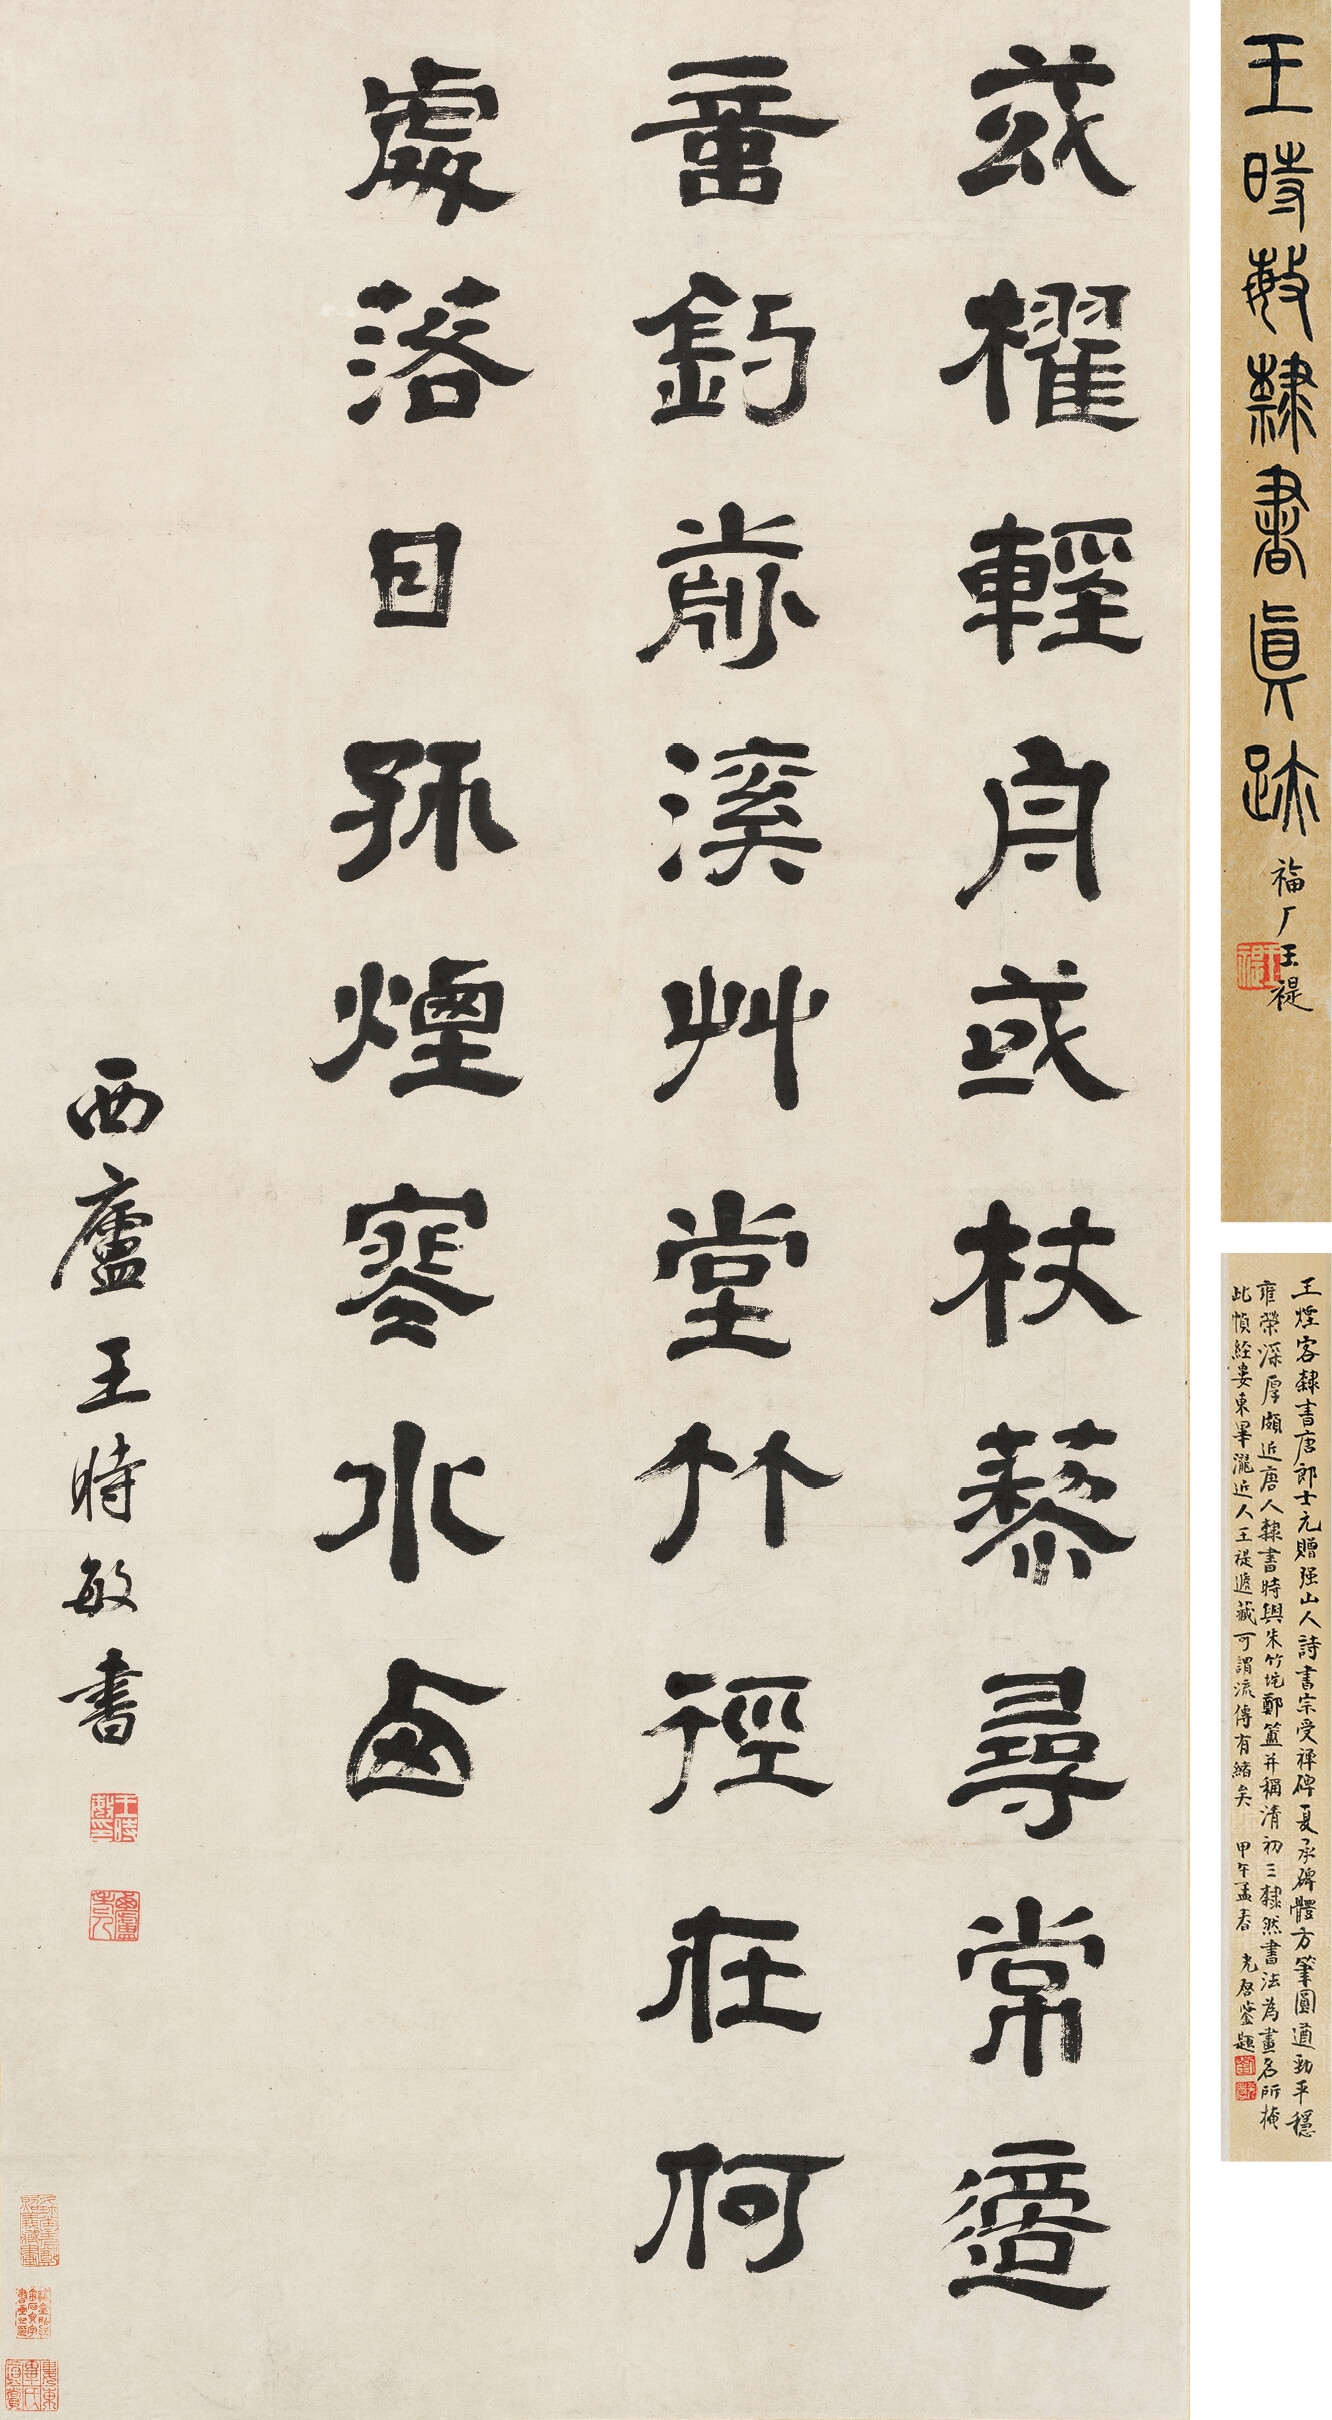 王時敏隸書真跡
福厂王禔
王禔
王煙客隸書唐郎士元贈强山人詩書宗受禅碑夏承碑體方筆圓遒勁平穩
雍榮深厚頗近唐人隸書時與朱竹垞鄭簠并稱清初三隸然書法為畫名所掩
此幀經婁東畢瀧近人王禔遞藏可謂流傳有緒矣 甲午孟春 光啓鑒題
或櫂輕舟或杖藜尋常適
意釣前溪艸堂竹徑在何
處落日孤煙寒水西
西廬王時敏書
王時敏印
西廬老人
婁東畢氏真賞